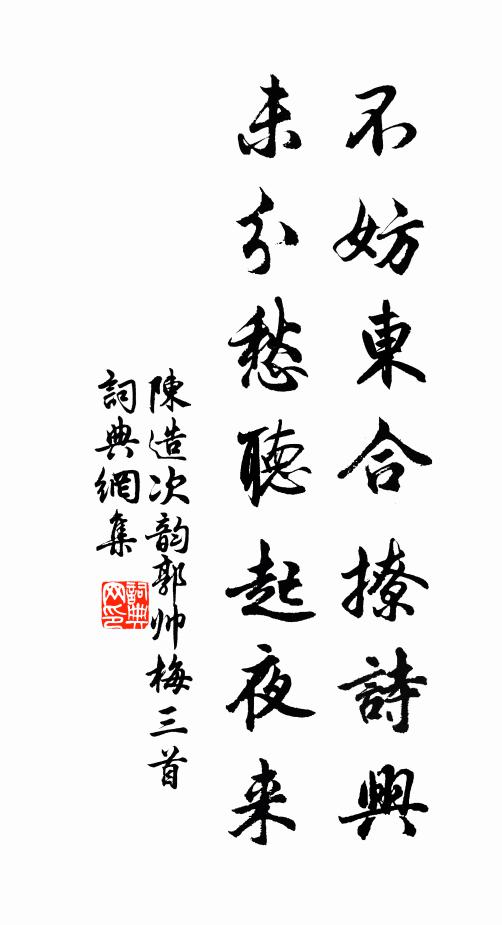 不妨東合撩詩興
未分愁聽起夜来
陳造次韵郭帅梅三首
詞典網集
詞典网印